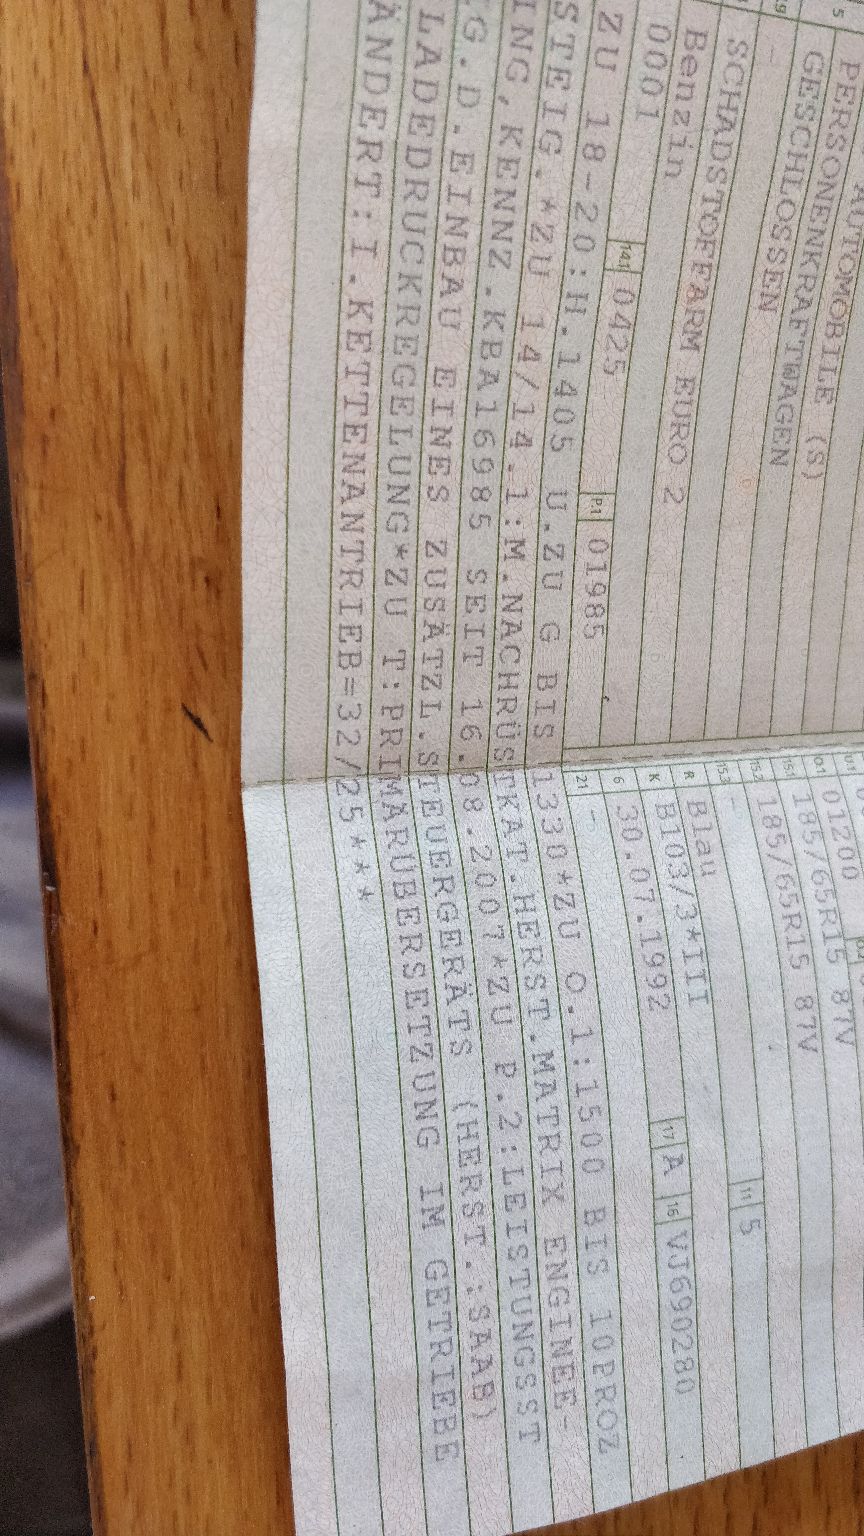 AUTOMOBILE (S)
5 PERSONENKRAFTWAGEN
GESCHLOSSEN
-
SCHADSTOFFARM EURO 2
Benzin
0001 14.1 0425 P.1 01985
01200
15.1 185/65R15 87V
15.2 185/65R15 87V
15.3 -
R Blau 11 5
K B103/3*III
6 30.07.1992 17 A 16 VJ690280
21 -
ZU 18-20:H.1405 U.ZU G BIS 1330*ZU O.1:1500 BIS 10PROZ
STEIG.*ZU 14/14.1:M.NACHRÜSTKAT.HERST.MATRIX ENGINEE-
ING,KENNZ.KBA16985 SEIT 16.08.2007*ZU P.2:LEISTUNGSST
G.D.EINBAU EINES ZUSÄTZL.STEUERGERÄTS (HERST.:SAAB)
LADEDRUCKREGELUNG*ZU T:PRIMÄRÜBERSETZUNG IM GETRIEBE
ÄNDERT:I.KETTENANTRIEB=32/25***